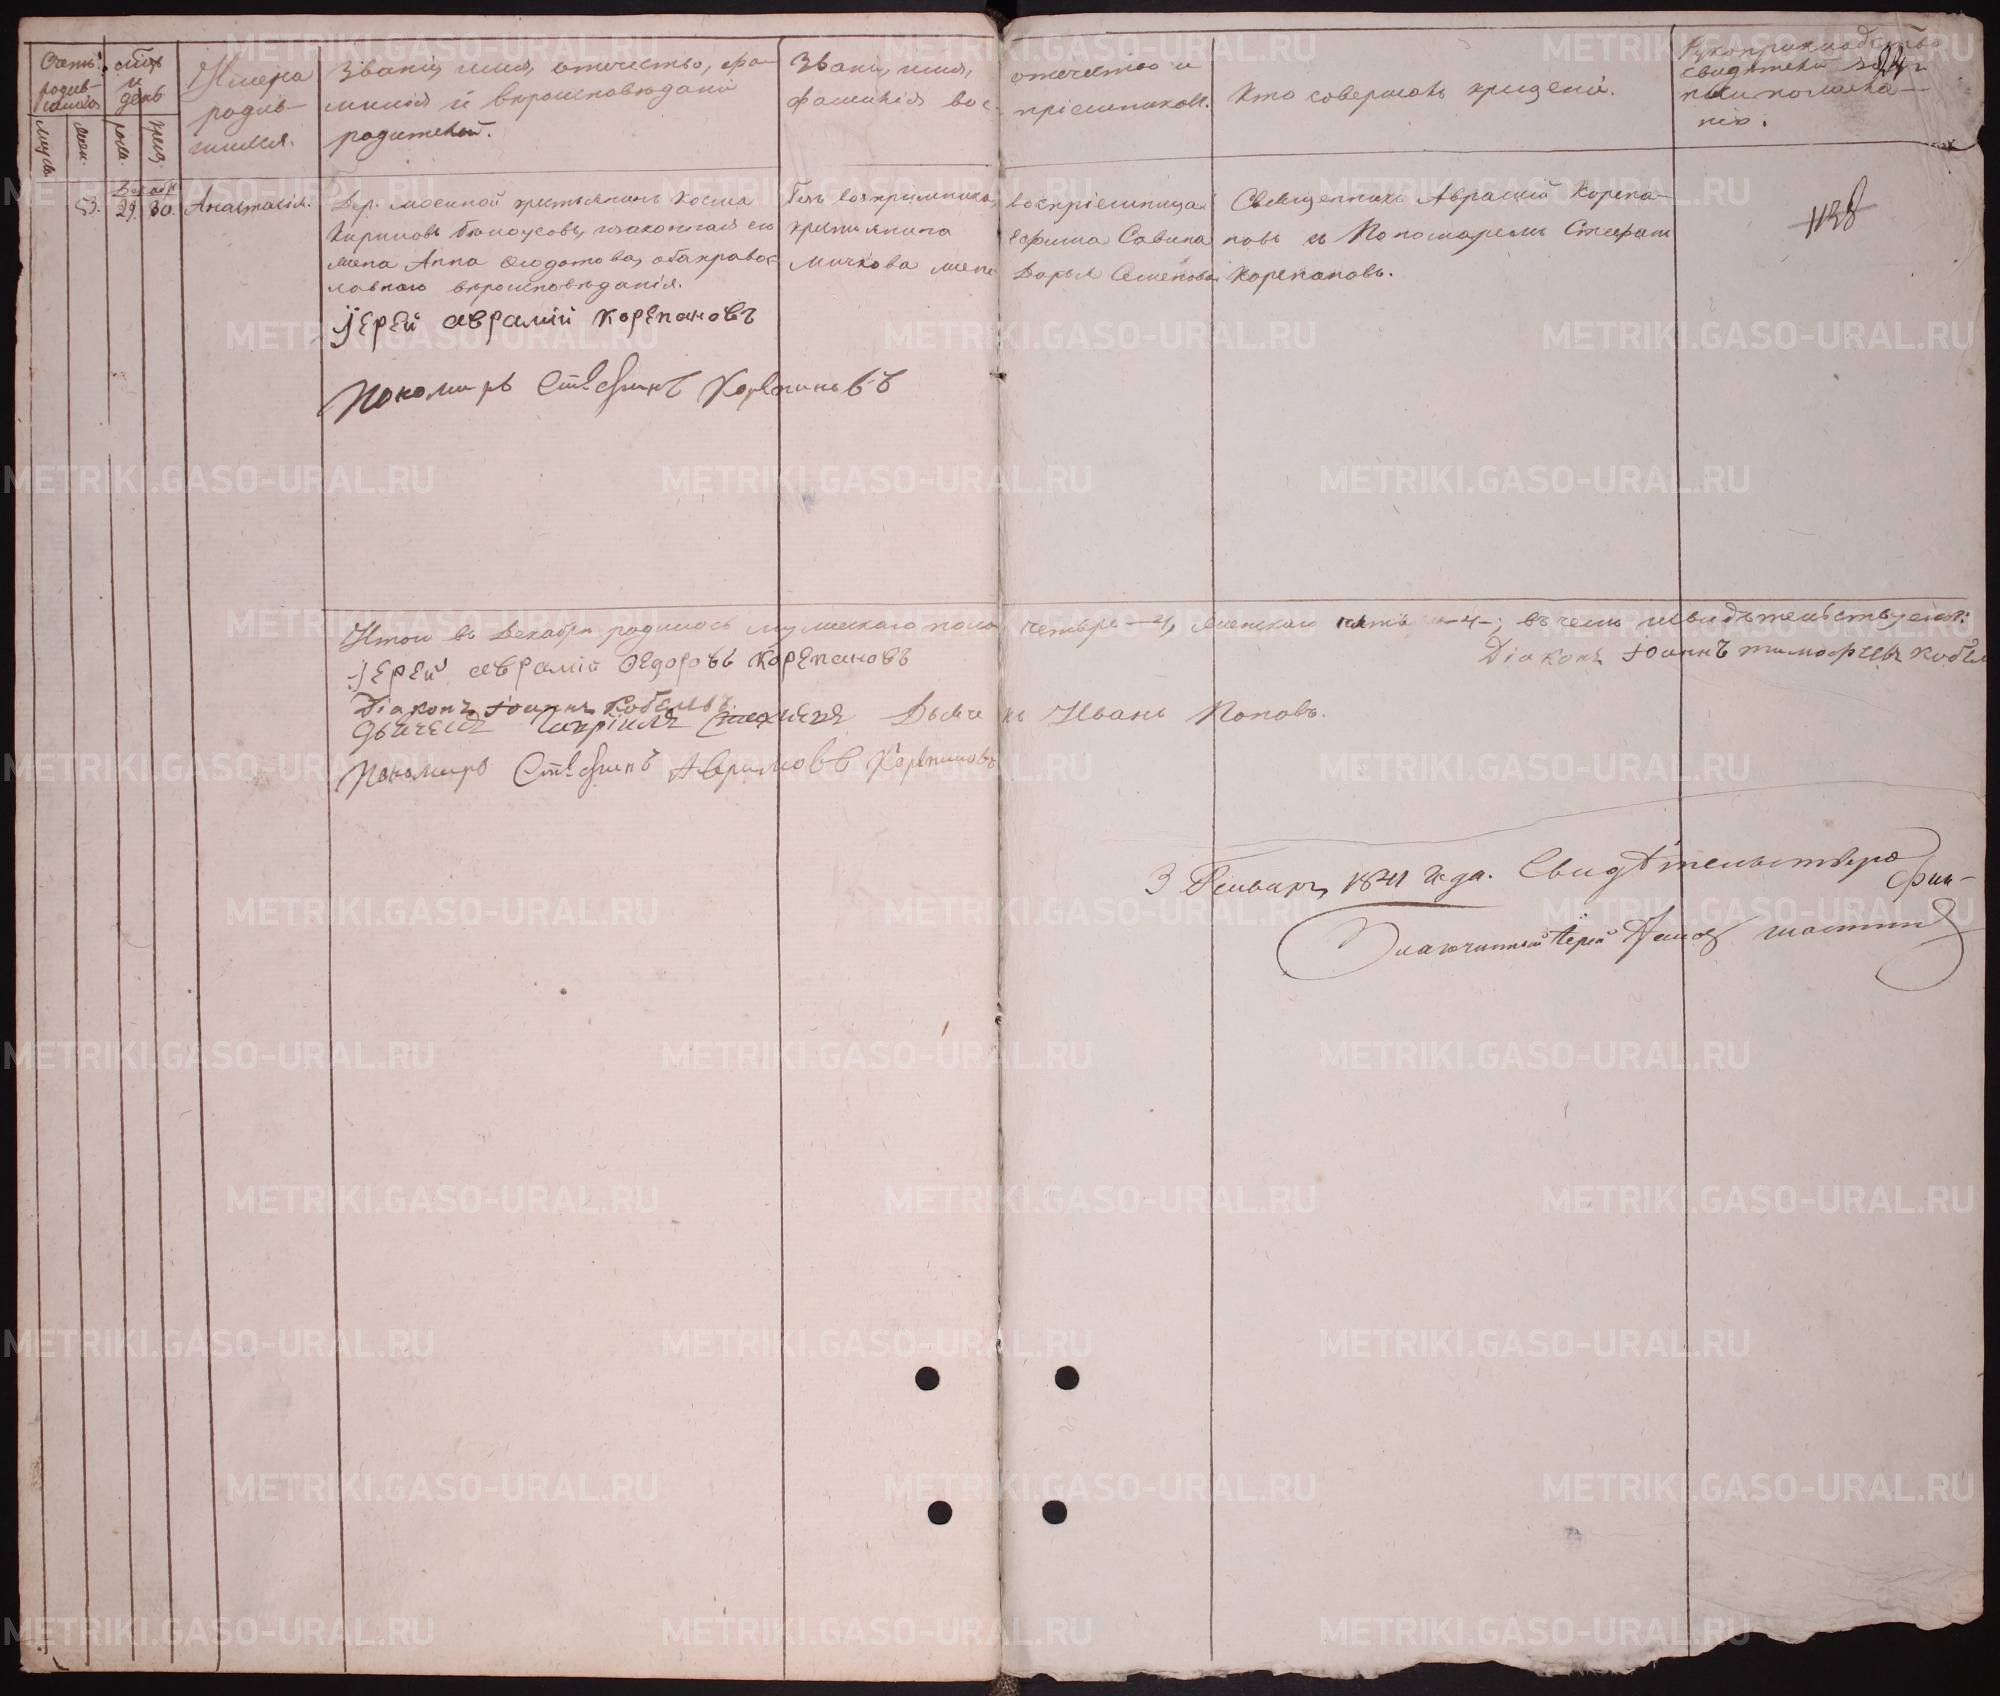 METRIKI.GASO-URAL.RU
Счетъ родив-
мѣсяцъ и день
муж.
жен.
рожд.
крещ.
Имена родив-
шихся.
Званіе, имя, отчество, фа-
милія и вѣроисповѣданіе
родителей.
Званіе, имя,
фамилія вос-
отчество и
пріемниковъ.
Кто совершалъ крещеніе.
Рукоприкладство
свидѣтелей
24
53.
Декабр.
29.
30.
Анастасія.
Дер. крестьянинъ Косма
Кириловъ Бѣлоусовъ, и законная его
жена Анна Ѳедотова, оба правос-
лавнаго вѣроисповѣданія.
крестьянина
Мичкова жена
воспріемница
Ефима Савина
Дарья Семенова
Священникъ Аврамій Корепа-
новъ съ Пономаремъ Стефан.
Корепановъ.
1138
Іерей Аврамій Корепановъ
Пономарь Стефанъ Корепановъ
Итого въ Декабрѣ родилось мужескаго пола четыре -4, женскаго -4-; въ чемъ и свидѣтельствуемъ:
Іерей Аврамій Ѳедоровъ Корепановъ
Діаконъ Іоаннъ Тимофѣевъ
Діаконъ Іоаннъ
Дьячекъ Иванъ Поповъ.
Пономарь Стефанъ Аврамовъ Корепановъ
3 Генваря 1841 года. Свидѣтельствовалъ
Благочинный Іерей